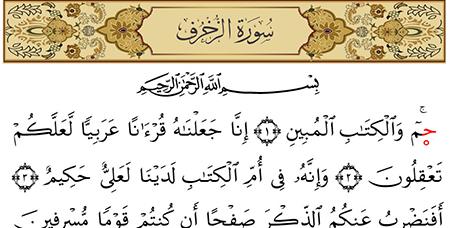 سُورَةُ الزُّخْرُفِ
بِسْمِ اللَّهِ الرَّحْمَٰنِ الرَّحِيمِ
حمٓ وَالْكِتَٰبِ الْمُبِينِ ﴿١﴾ إِنَّا جَعَلْنَٰهُ قُرْءَٰنًا عَرَبِيًّا لَعَلَّكُمْ
تَعْقِلُونَ ﴿٢﴾ وَإِنَّهُۥ فِىٓ أُمِّ الْكِتَٰبِ لَدَيْنَا لَعَلِىٌّ حَكِيمٌ ﴿٣﴾
أَفَنَضْرِبُ عَنكُمُ الذِّكْرَ صَفْحًا أَن كُنتُمْ قَوْمًا مُّسْرِفِينَ